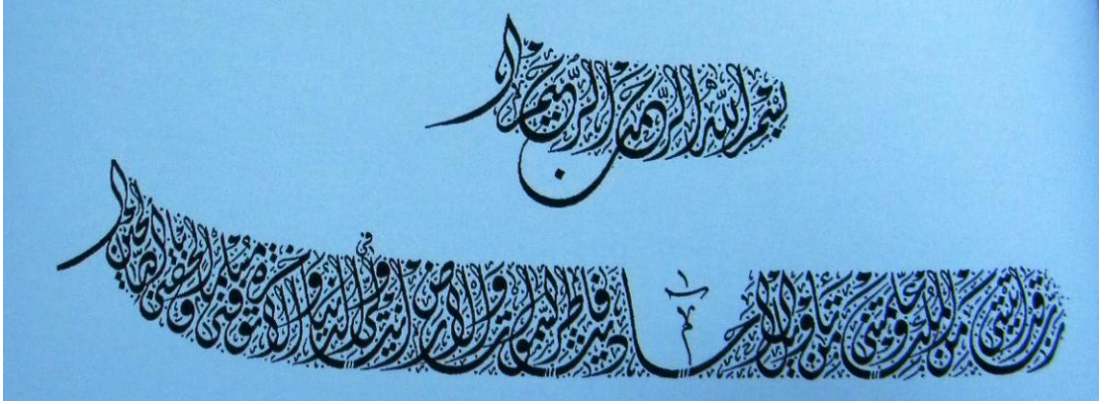 بسم الله الرحمن الرحيم
رب قد آتيتني من الملك وعلمتني من تأويل الأحاديث فاطر السموات والأرض أنت وليي في الدنيا والآخرة توفني مسلما وألحقني بالصالحين